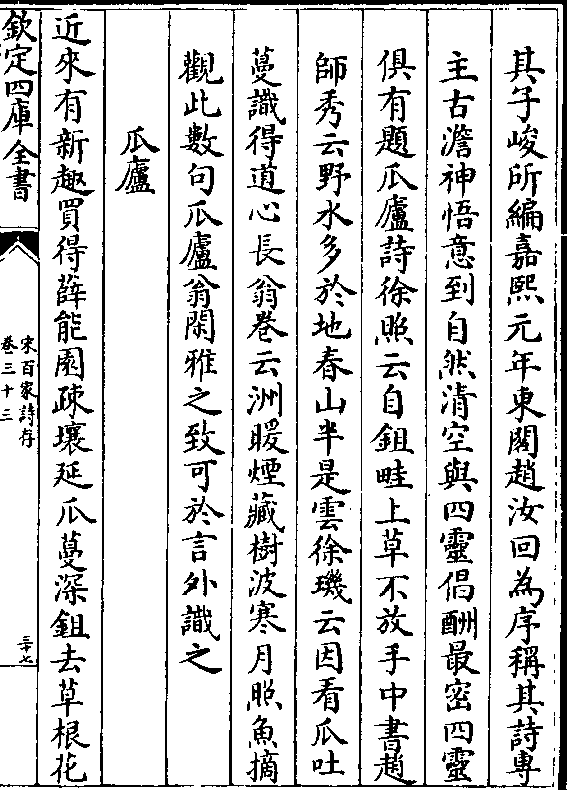 其子峻所編嘉熙元年東閣趙汝回為序稱其詩専
主古澹神悟意到自然清空與四靈倡酬最密四靈
俱有題瓜廬詩徐照云自鉏畦上草不放手中書趙
師秀云野水多於地春山半是雲徐璣云因看瓜吐
蔓識得道心長翁巻云洲暖煙藏樹波寒月照魚摘
觀此數句瓜廬翁閑雅之致可於言外識之
瓜廬
近來有新趣買得薛能園疎壤延瓜蔓深鉏去草根花
欽定四庫全書
宋百家詩存
卷三十三
三十七